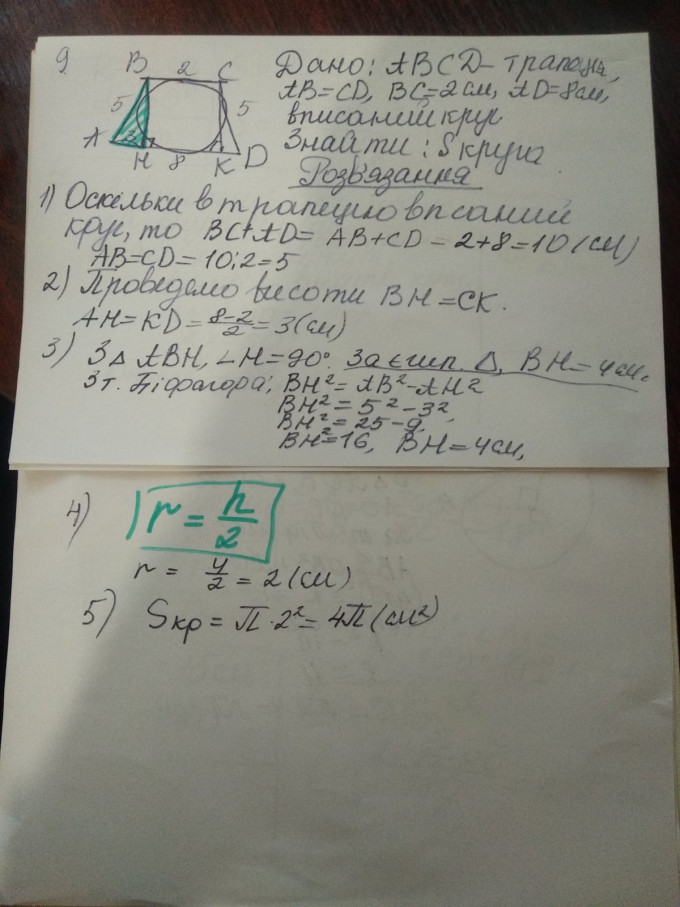 9
B 2 C
5 5
A 3 H 8 K D
Дано: ABCD - трапеція,
AB=CD, BC=2 см, AD=8см,
вписаний круг
Знайти: S круга
Розв'язання
1) Оскільки в трапецію вписаний
круг, то BC+AD= AB+CD = 2+8=10 (см)
AB=CD= 10:2=5
2) Проведемо висоти BH=CK.
AH=KD= 8-2/2 = 3(см)
3) З Δ ABH, ∠H=90°. За єгип. Δ, BH=4см.
З т. Піфагора: BH²= AB²-AH²
BH²= 5²-3²,
BH²=25-9,
BH²=16, BH=4см,
4) r = h/2
r = 4/2 = 2 (см)
5) Sкр = П·2²= 4П (см²)